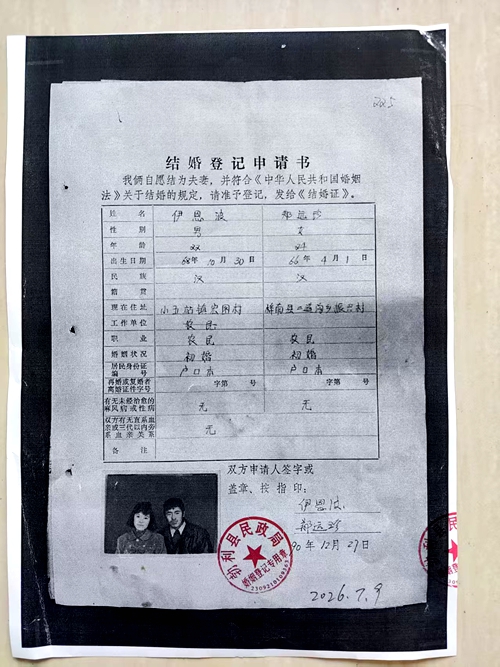 225
结婚登记申请书
我俩自愿结为夫妻，并符合《中华人民共和国婚姻
法》关于结婚的规定，请准予登记，发给《结婚证》。
姓名 伊恩波 郑远珍
性别 男 女
年龄 22 24
出生日期 68年10月30日 66年4月1日
民族 汉 汉
籍贯
现在住址 小五站镇宏图村 桦南县 湾乡振兴村
工作单位 农民
职业 农民 农民
婚姻状况 初婚 初婚
居民身份证
编号 户口本 户口本
再婚或复婚者
离婚证件字号 字第 号 字第 号
有无未经治愈的
麻风病或性病 无 无
双方有无直系血
亲或三代以内旁
系血亲关系 无
备注
双方申请人签字或
盖章、按指印：
伊恩波
郑远珍
90年12月29日
勃利县民政局
婚姻登记专用章
2026.7.9